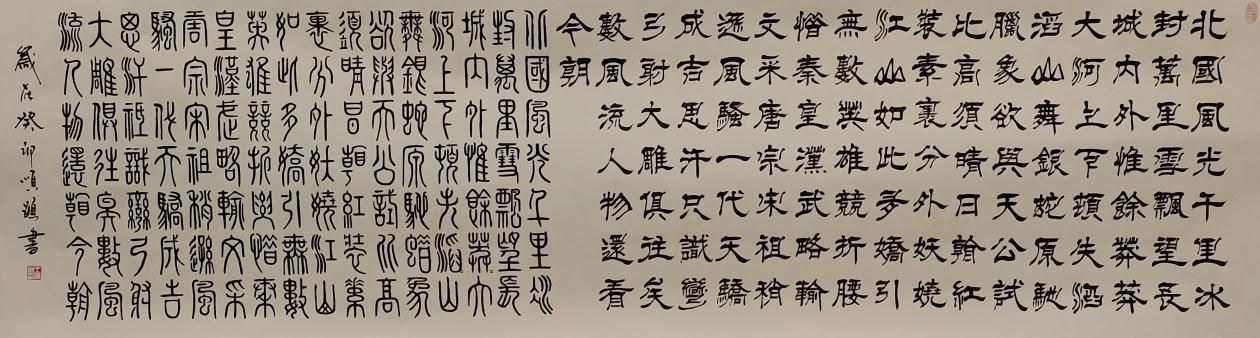 北國風光千里冰
封萬里雪飄望長
城內外惟餘莽莽
大河上下頓失滔
滔山舞銀蛇原馳
臘象欲與天公試
比高須晴日看紅
裝素裹分外妖嬈
江山如此多嬌引
無數英雄競折腰
惜秦皇漢武略輸
文采唐宗宋祖稍
遜風騷一代天驕
成吉思汗只識彎
弓射大雕俱往矣
數風流人物還看
今朝
北國風光千里冰
封萬里雪飄望長
城內外惟餘莽大
河上下頓失滔山
舞銀蛇原馳蠟象
欲與天公試比高
須晴日看紅裝素
裹分外妖嬈江山
如此多嬌引無數
英雄競折腰惜秦
皇漢武略輸文采
唐宗宋祖稍遜風
騷一代天驕成吉
思汗祗識彎弓射
大雕俱往矣數風
流人物還看今朝
歲在癸卯順書